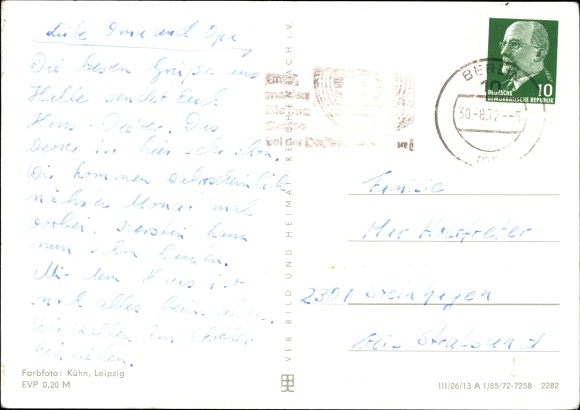 Liebe Oma und Opa,
Die besten Grüße aus
Halle sendet Euch
Hans Dieter. Das
ist hier sehr schön.
Wir kommen wahrscheinlich
nächsten Monat mal
vorbei. Kerstin kann
nun schon laufen.
Mit dem Haus ist
noch alles beim alten.
Wir wollen im Oktober
einziehen.
Farbfoto: Kühn, Leipzig
EVP 0,20 M
VEB BILD UND HEIMAT REICHENBACH I. V.
BERLIN
30.-8.72.--5
DEUTSCHE
DEMOKRATISCHE REPUBLIK
10
Familie
2391
Kreis Stralsund
III/26/13 A 1/85/72-7258 2282